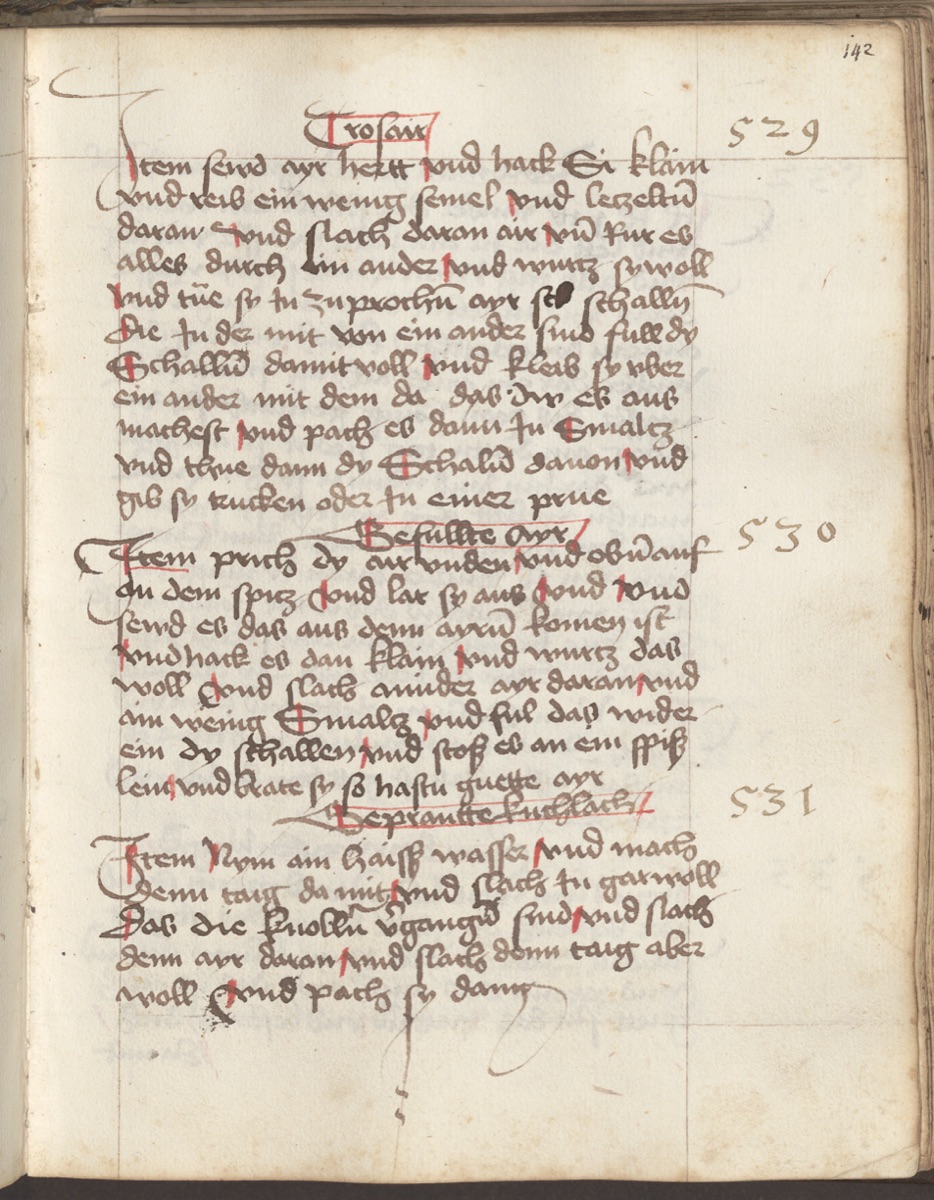 142
Trosair
529
Item sewd ayr hertt vnd hack Si klain
vnd reib ein wenig semel vnd letzeltn̄
daran vnd slach daran air vn̄ Rur es
alles durch ein ander vnd wurtz sy woll
vnd tue sy In zuprochn̄ ayr schalln̄
die In der mit von ein ander sind full dy
Schalln̄ damit voll vnd kleib sy vber
ein ander mit dem da das dw es aus
machest vnd pach es dann In Smaltz
vnd thue dann dy Schaln̄ dauon vnd
gib sy trucken oder In einer prue
Gefullte Ayr
530
Item prich dy air vnden vnd obn̄ auf
an dem spitz vnd lar sy aus vnd vnd
sewd es das aus denn ayrn̄ komen ist
vnd hack es dan klain vnd wurtz das
woll vnd slach ander ayr daran vnd
ain wenig Smaltz vnd ful das wider
ein dy schallen vnd stoß es an ein spiß
lein vnd brate sy so hastu guette ayr
Geprantte kuchlach
531
Item Nym ain haiss wasser vnd mach
denn taig da mit vnd slach In gar woll
Das die knolln̄ v̄gangn̄ sind vnd slach
denn ayr daran vnd slach denn taig aber
woll vnd pach sy dann